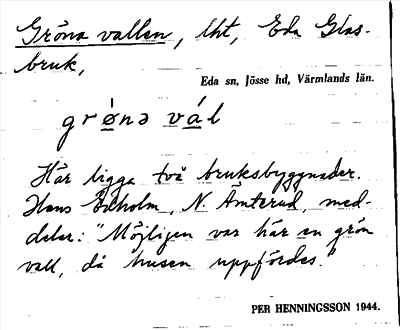 Gröna vallen, lht, Eda Glas-
bruk,
Eda sn, Jösse hd, Värmlands län.
grø̀nə vál
Här ligga två bruksbyggnader.
Hans Ekholm, N. Ämterud, med-
delar: "Möjligen var här en grön
vall, då husen uppfördes."
PER HENNINGSSON 1944.